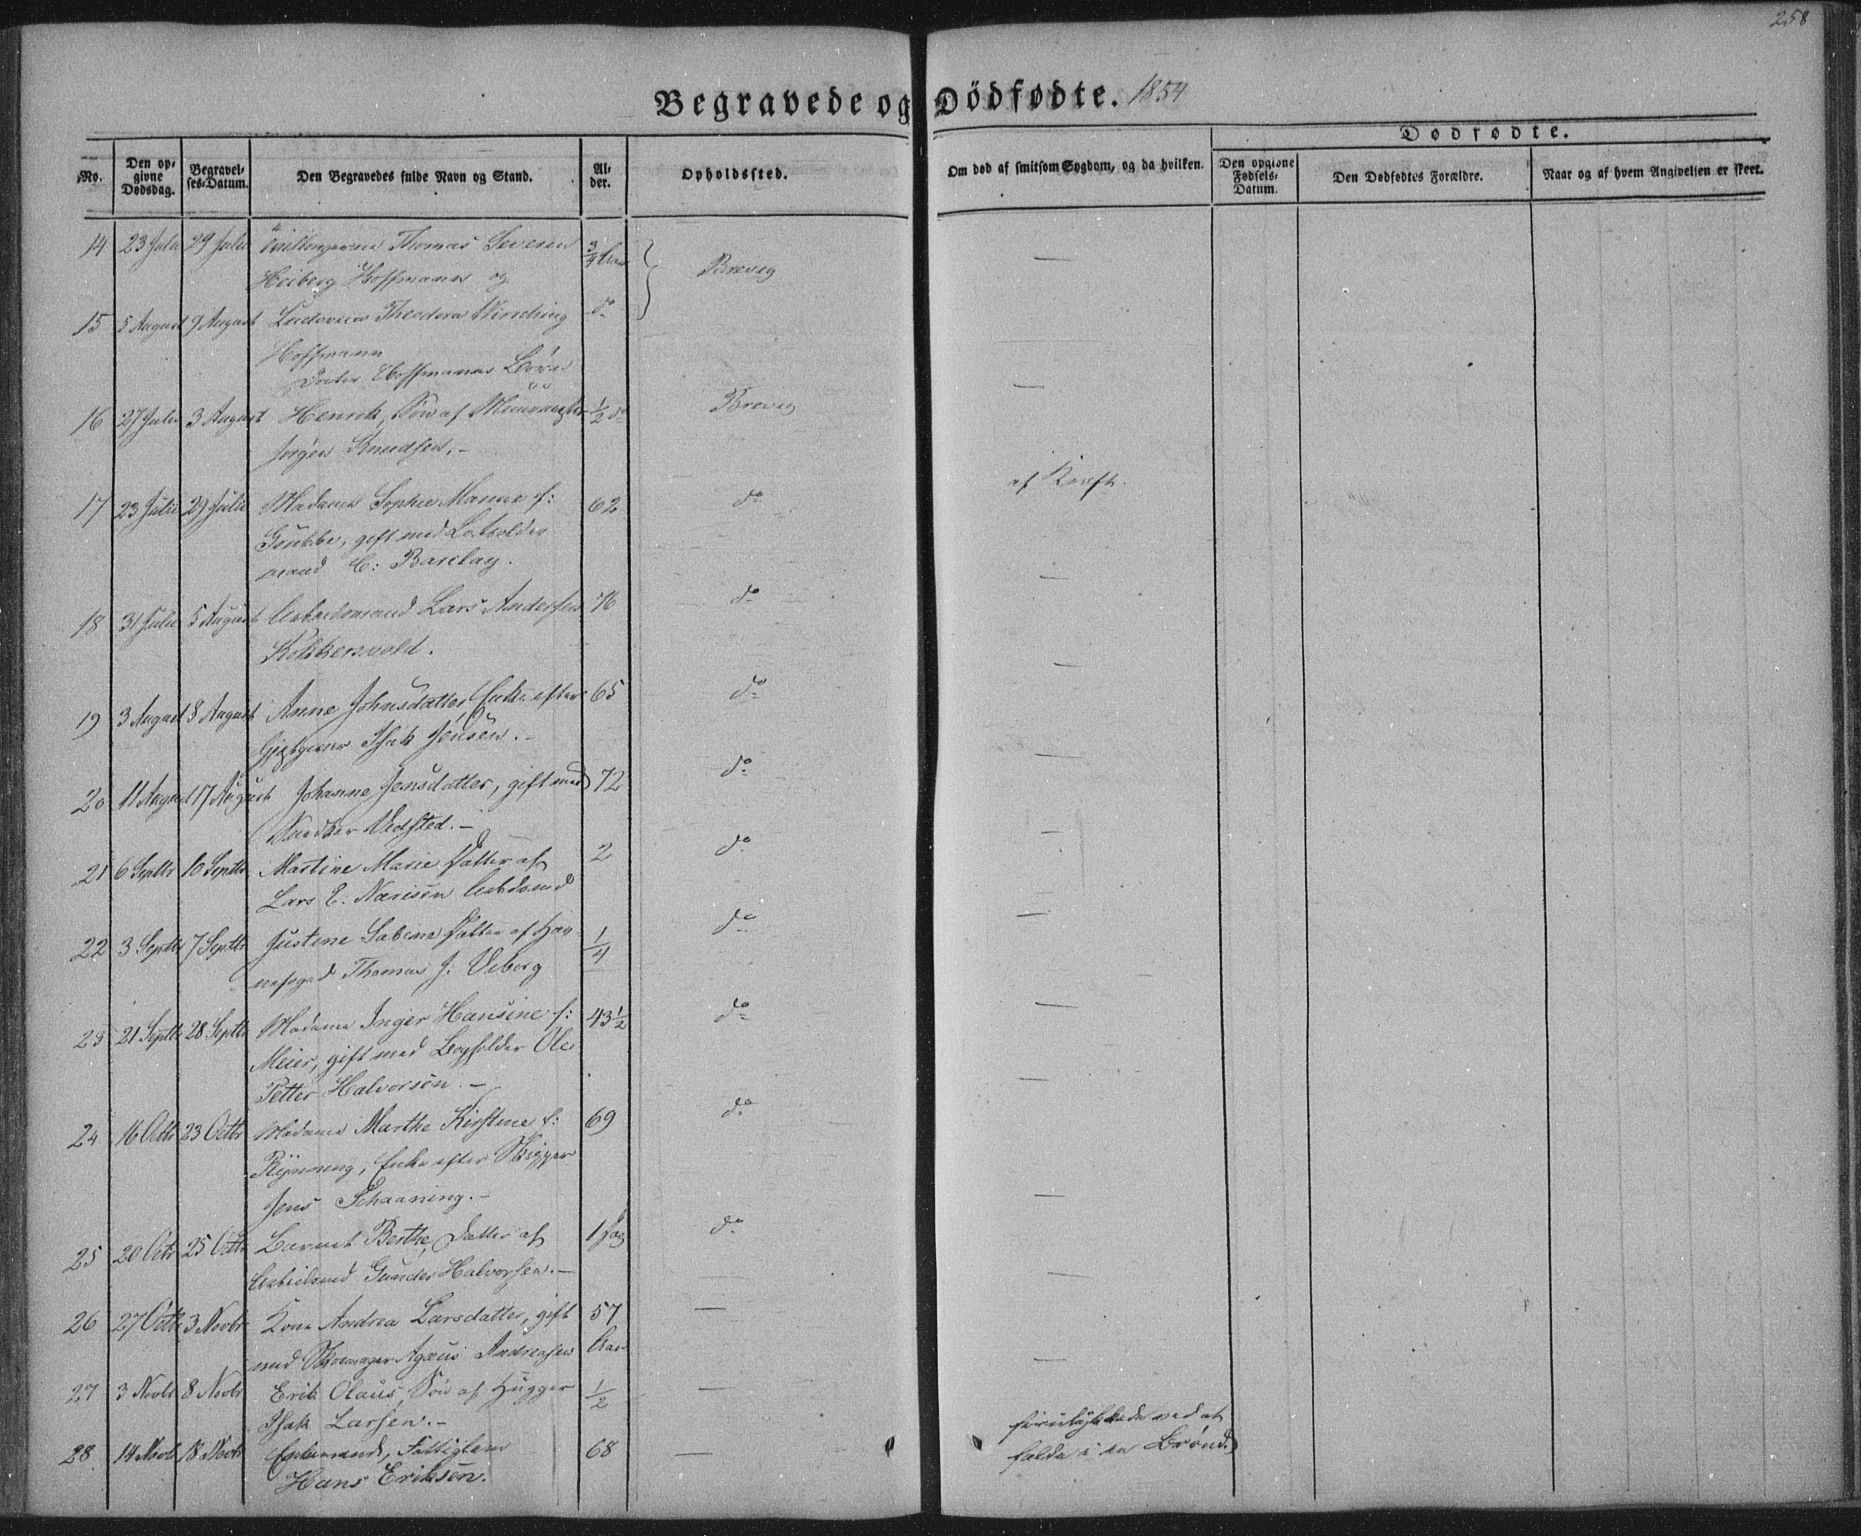 258
Begravede og Dödfødte. 1854
Dødfødte.
No.
Den opgivne Dødsdag.
Begravelses-Datum.
Den Begravedes fulde Navn og Stand.
Alder.
Opholdssted.
Om død af smitsom Sygdom, og da hvilken.
Den opgivne Fødsels-Datum.
Den Dødfødtes Forældre.
Naar og af hvem Angivelsen er skeet.
14 23 Juli 29 Juli Tvillingerne Thomas Severin 3/4 Aar Brevig —
Heiberg Hoffmann og
15 5 August 9 August Ludovica Theodora Wirsching do
Hoffmann
Hoffmanns Börn
16 27 Juli 3 August Henrik, Sön af 1/2 do Brevig —
Jörgen Knudsen. -
17 23 Juli 29 Juli Madame Sophie Manne f: 62 do af Kræft.
Grubbe, gift med
mand C: Barclay.
18 31 Juli 5 August Arbeidsmand Lars Andersen 76 do —
Kokkersvold.
19 3 August 8 August Anne Johnsdatter, Enke efter 65 do —
Isak Jensen. -
20 11 August 17 August Johanne Jensdatter, gift med 72 do —
Snedker Vedsted. -
21 6 Septbr 10 Septbr Martine Marie Datter af 2 do —
Lars E. Nærisen Arbdsmd
22 3 Septbr 7 Septbr Justine Sabine Datter af Hav- 1/4 do —
nefoged Thomas J. Veborg
23 21 Septbr 28 Septbr Madame Inger Hansine f: 43 1/2 do —
Meier, gift med Bogholder Ole
Petter Halvorsen. - —
24 16 Octbr 23 Octbr Madame Marthe Kirstine f: 69 do
Rynning, Enke efter Skipper
Jens Schaaning. - —
25 20 Octr 25 Octbr Barnet Berthe, Datter af 1 Dag do
Arbeidsmd Gunder Halvorsen. - —
26 27 Octbr 3 Novbr Kone Andrea Larsdatter, gift 57 —
med Skomager Agæus Andreasen Aar —
27 3 Novbr 8 Novbr Erik Olaus, Sön af Hugger 1/2 —
Isak Larsen. -
28 14 Novb 18 Novbr Enkemand, Fattiglem 68 —
Hans Eriksen.
forulykkede ved at
falde i en Brønd.